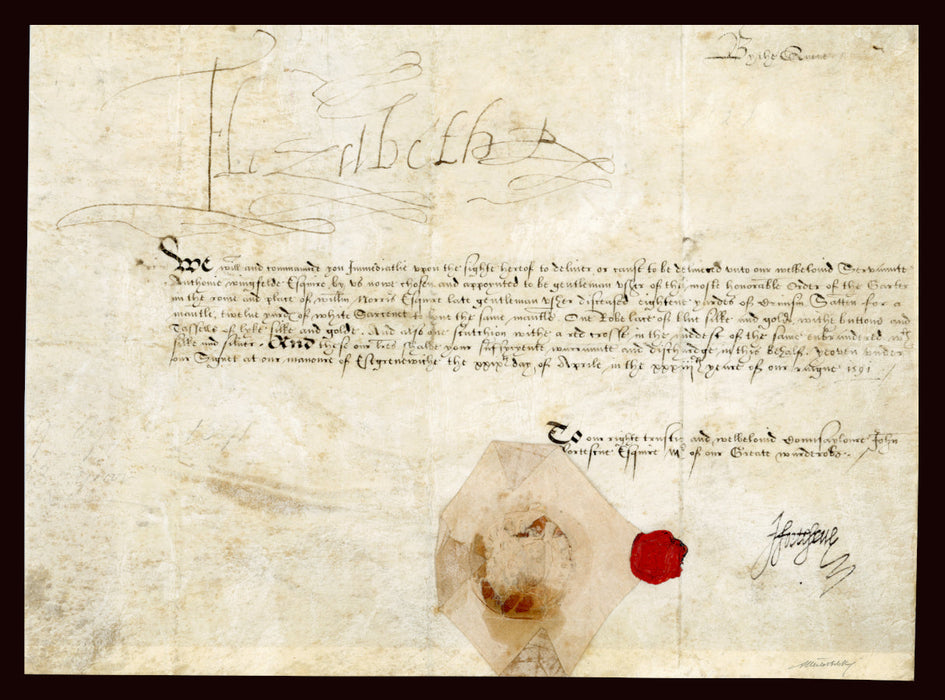 By the Quene
Elizabeth R
We will and commaunde you Immediatlie upon the sighte hereof to deliver or cause to be delivered unto our welbeloved Servaunte
Anthonie wingfelde Esquire by us nowe chosen and appoynted to be gentleman Ussher of the moste honorable Order of the Garter
in the rome and place of willm Norris Esquire late gentleman Ussher diseased eightene yardes of Crimsin Satten for a
mantle, twelve yardes of white Sarcenet to lyne the same mantle. One Robe lace of blue silke and golde, withe buttons and
Tasselles of lyke silke and golde. And also one scutchion withe a red crosse in the middest of the same enbrawdered
silke and silver. And these our lres shalbe your sufficyente warraunte and discharge in this behalf. yeoven under
our Signet at our mannore of Estgrenewiche the xxixth day of Aprile in the xxxiiith yeare of our raigne 1591
To our right trustie and welbeloved Counsaylour John
Fortescue Esquire Mr of our Greate warderobe.
J Fortescue